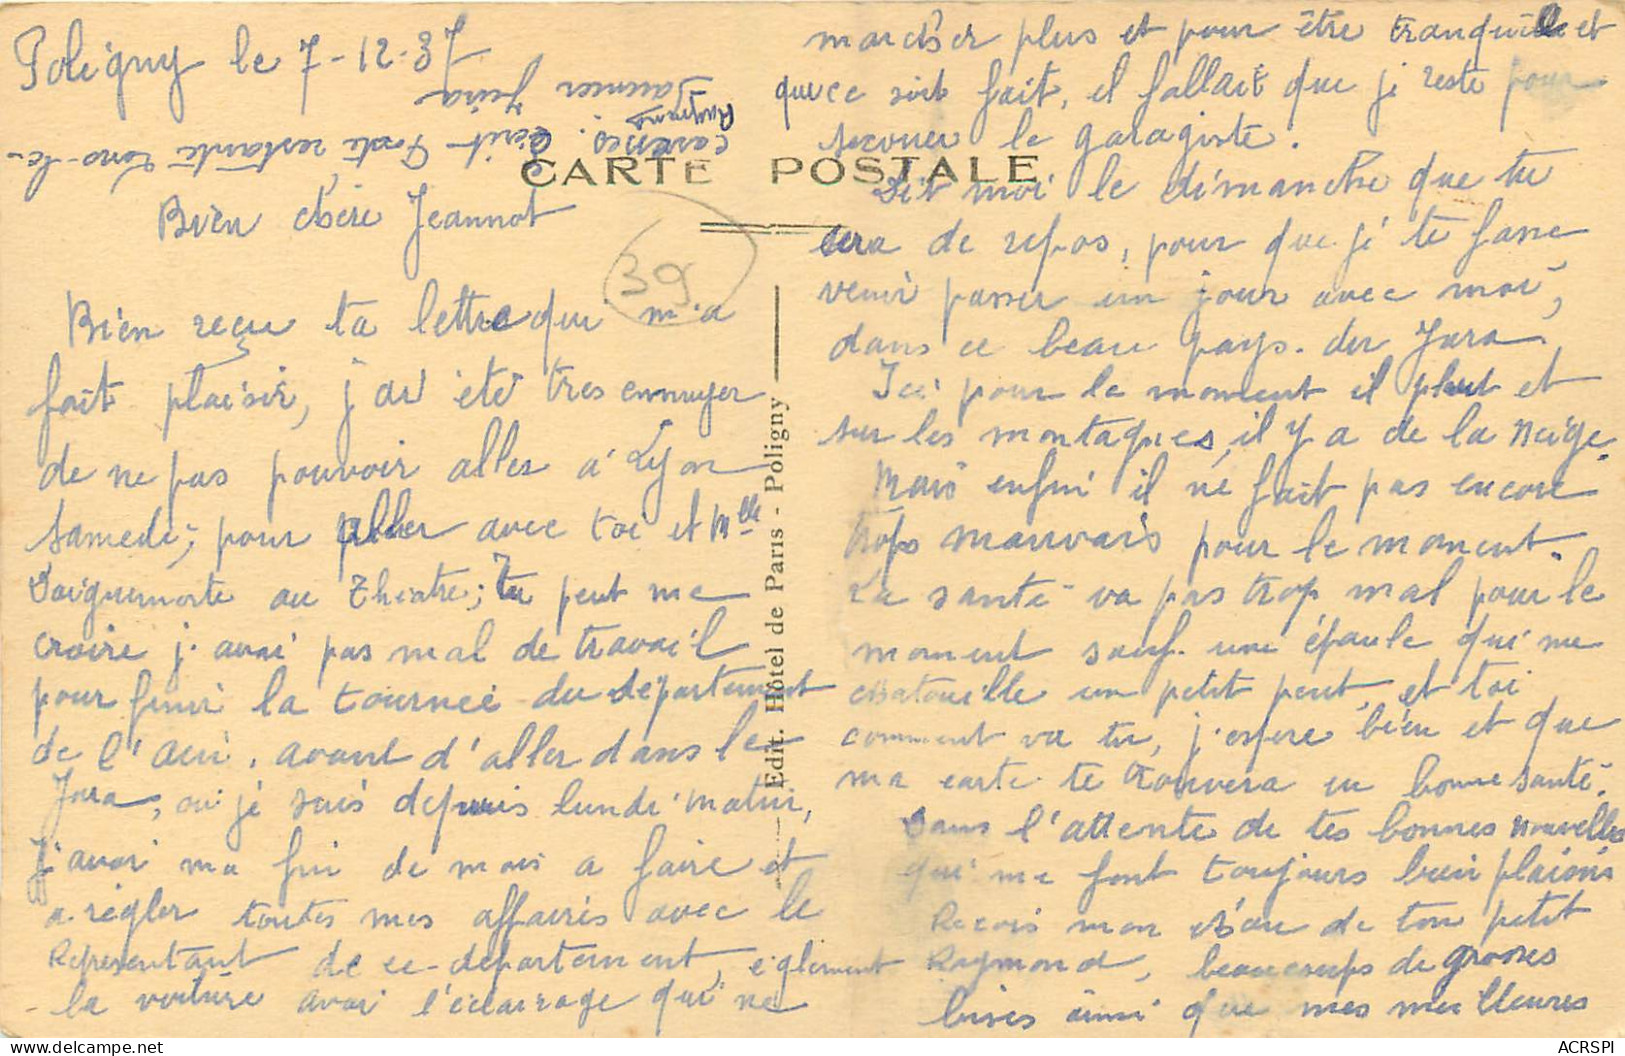 Poligny le 7-12-37
CARTE POSTALE
Bien chère Jeannot
39
Bien reçu ta lettre qui m'a
fait plaisir, j'ai été très ennuyer
de ne pas pouvoir aller à Lyon
samedi; pour aller avec toi et Mlle
Daiguemorte au Théatre; Tu peut me
croire j'avai pas mal de travail
pour finir la tournée du département
de l'Ain, avant d'aller dans le
Jura, ou je suis depuis lundi matin,
J'avai ma fin de mois a faire et
a régler toutes mes affaires avec le
Représentant de ce département, églement
la voiture avai l'éclairage qui ne
marcher plus et pour être tranquille et
que ce soit fait, il fallait que je reste pour
secouer le garagiste.
Dit moi le dimanche que tu
sera de repos, pour que je te fasse
venir passer un jour avec moi,
dans ce beau pays du Jura
Ici pour le moment il pleut et
sur les montagnes, il y a de la neige.
Mais enfin il ne fait pas encore
trop mauvais pour le moment.
La santé va pas trop mal pour le
moment sauf une épaule qui me
chatouille un petit peut, et toi
comment va tu, j'espère bien et que
ma carte te trouvera en bonne santé.
Dans l'attente de tes bonnes nouvelles
qui me font toujours bien plaisir
Recois mon de ton petit
Raymond, beaucoups de grosses
bises ainsi que mes meilleures
caresses. Raymond
Ecrit Poste restante Lons-le-
Saunier Jura
Edit. Hôtel de Paris - Poligny
ACRSPI